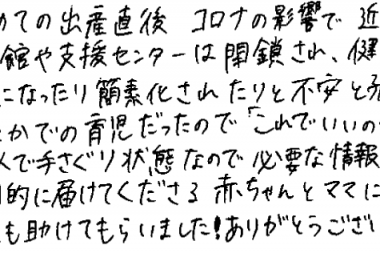 めての出産直後 コロナの影響で 近
館や支援センターは閉鎖され、健
になったり簡素化されたりと不安と
かでの育児だったので「これでいいの
で手さぐり状態なので必要な情報
的に届けてくださる 赤ちゃんとママに
も助けてもらいました!ありがとうござい